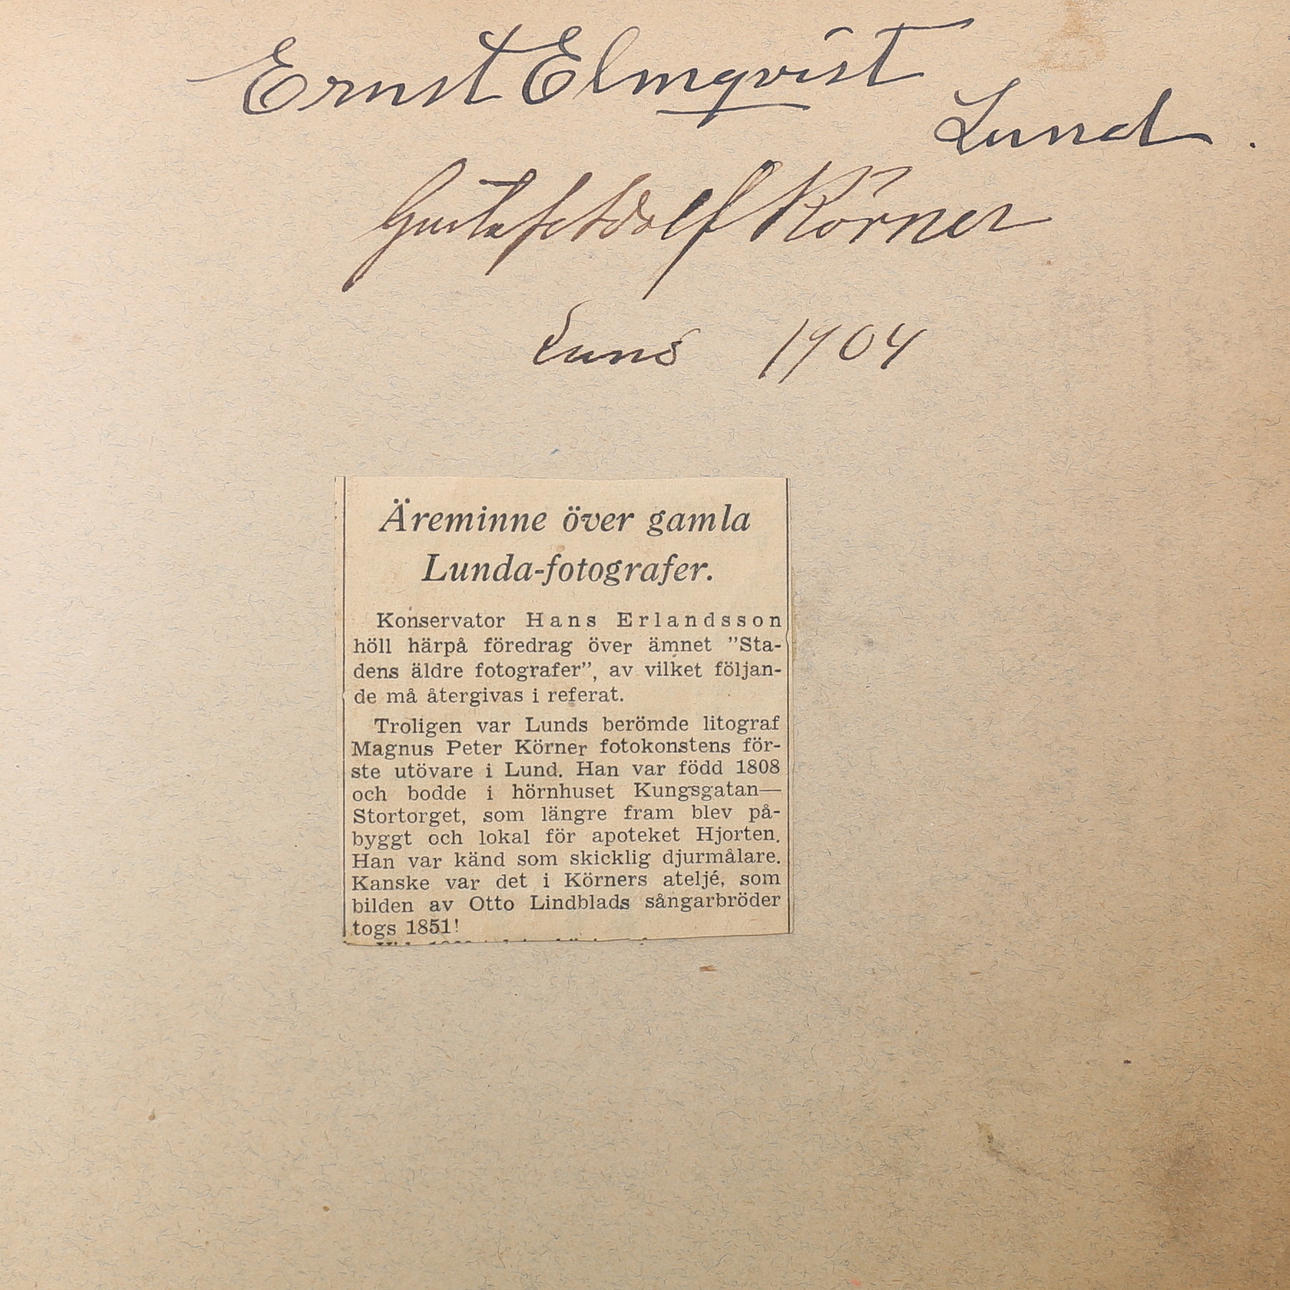 Ernst Elmqvist
Lund.
Gustaf Adolf Körner
Lund 1904
Äreminne över gamla
Lunda-fotografer.
Konservator Hans Erlandsson
höll härpå föredrag över ämnet "Sta-
dens äldre fotografer", av vilket följan-
de må återgivas i referat.
Troligen var Lunds berömde litograf
Magnus Peter Körner fotokonstens för-
ste utövare i Lund. Han var född 1808
och bodde i hörnhuset Kungsgatan—
Stortorget, som längre fram blev på-
byggt och lokal för apoteket Hjorten.
Han var känd som skicklig djurmålare.
Kanske var det i Körners ateljé, som
bilden av Otto Lindblads sångarbröder
togs 1851!